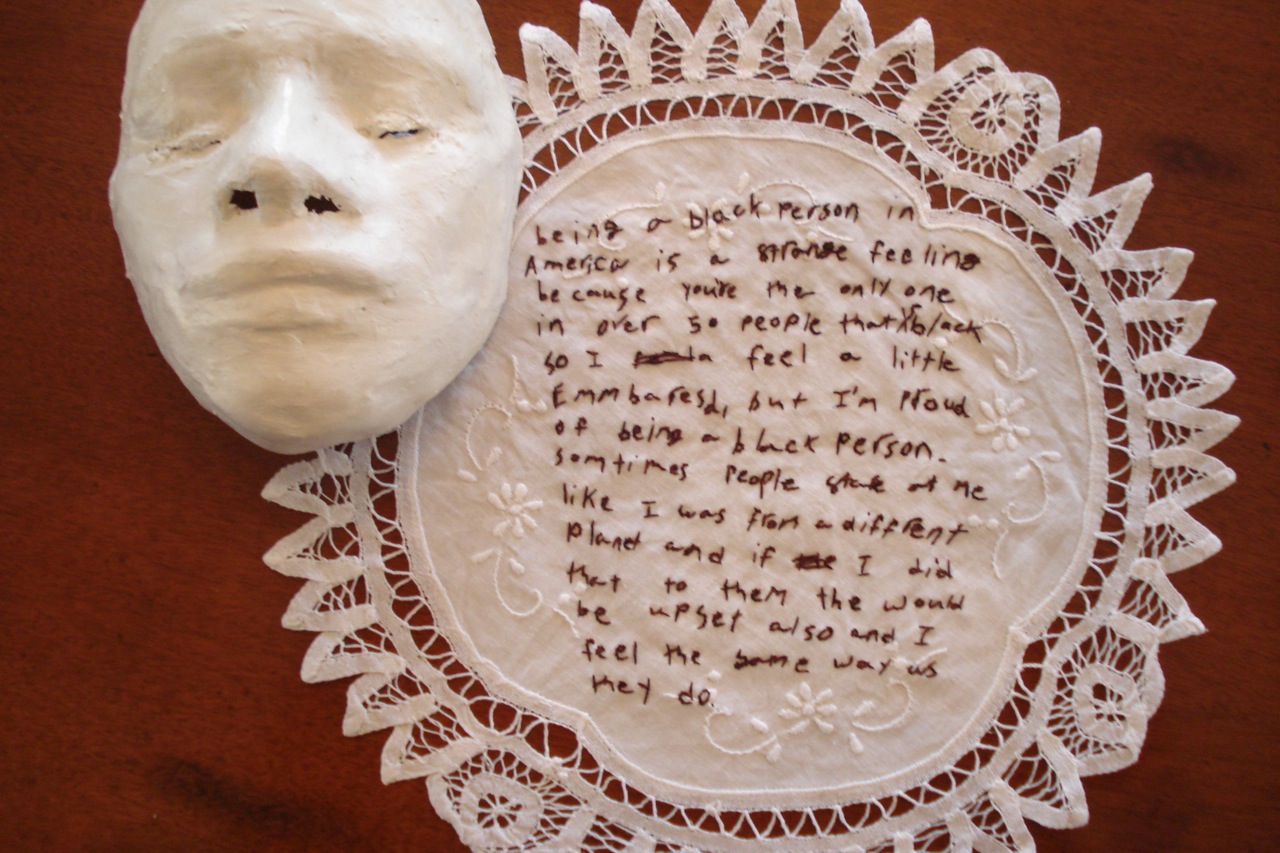 being a black person in
America is a strange feeling
because you're the only one
in over 50 people that's black
so I feel a little
Emmbaresd, but I'm proud
of being a black person.
somtimes people stare at me
like I was from a diffrent
planet and if I did
that to them the would
be upset also and I
feel the same way as
they do.